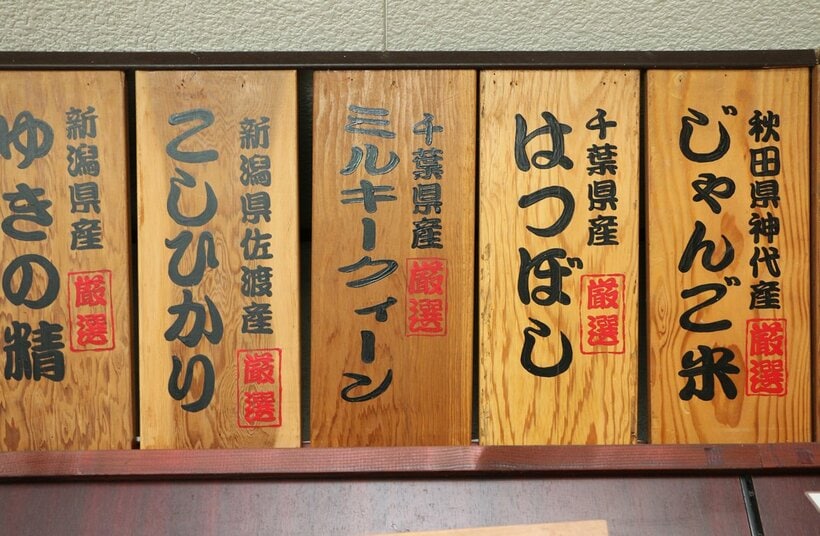 秋田県神代産
厳選
じゃんご米
千葉県産
厳選
はつぼし
千葉県産
厳選
ミルキークィーン
新潟県佐渡産
厳選
こしひかり
新潟県産
厳選
ゆきの精